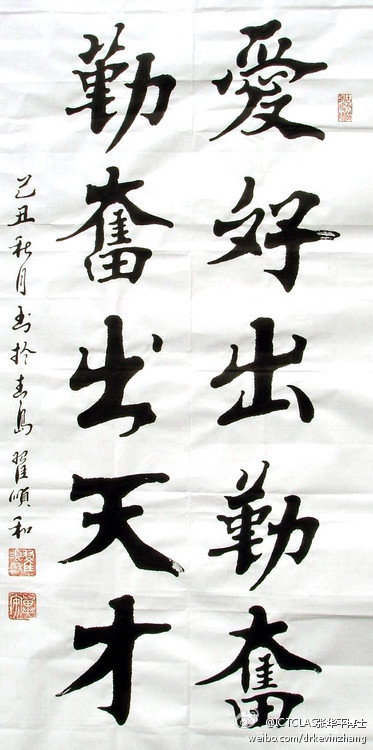 愛好出勤奮
勤奮出天才
己丑秋月書於青島 翟順和
@ICTCLAS张华平博士
weibo.com/drkevinzhang